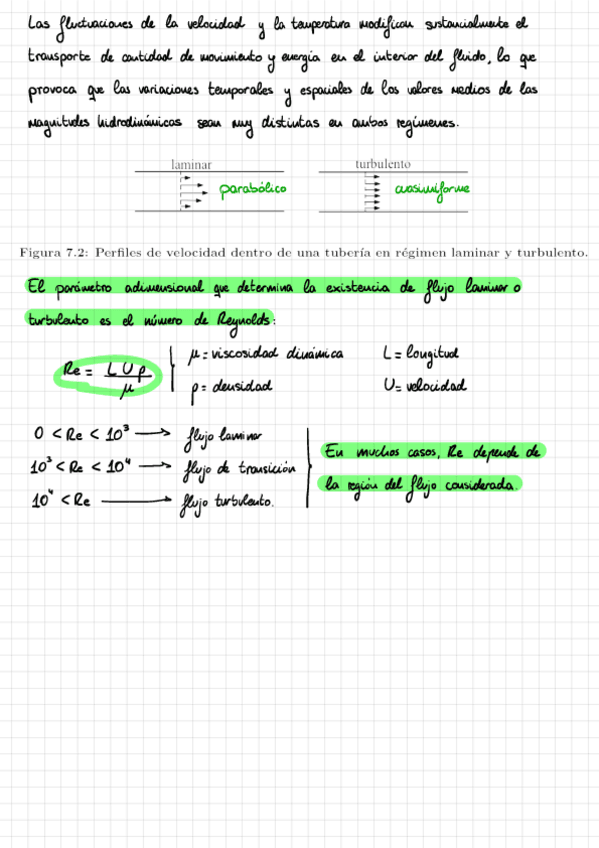 Las fluctuaciones de la velocidad y la temperatura modifican sustancialmente el
transporte de cantidad de movimiento y energía en el interior del fluido, lo que
provoca que las variaciones temporales y espaciales de los valores medios de las
magnitudes hidrodinámicas sean muy distintas en ambos regímenes.
laminar turbulento
parabólico cuasiuniforme
Figura 7.2: Perfiles de velocidad dentro de una tubería en régimen laminar y turbulento.
El parámetro adimensional que determina la existencia de flujo laminar o
turbulento es el número de Reynolds:
Re = L U ρ / μ
μ = viscosidad dinámica L = longitud
ρ = densidad U = velocidad
0 < Re < 10³ → flujo laminar
10³ < Re < 10⁴ → flujo de transición
10⁴ < Re → flujo turbulento.
En muchos casos, Re depende de
la región del flujo considerada.